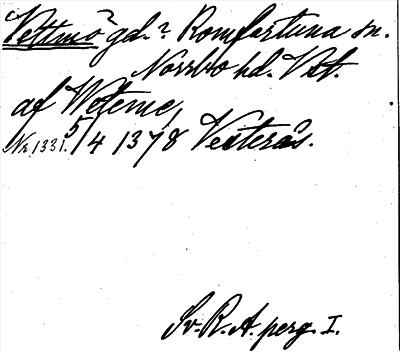 Vettmo? gd.? Romfartuna sn.
Norrbo hd. Vst.
af Weteme,
Nr 1331. 5/4 1378 Vesterås.
Sv. R. A. perg. I.